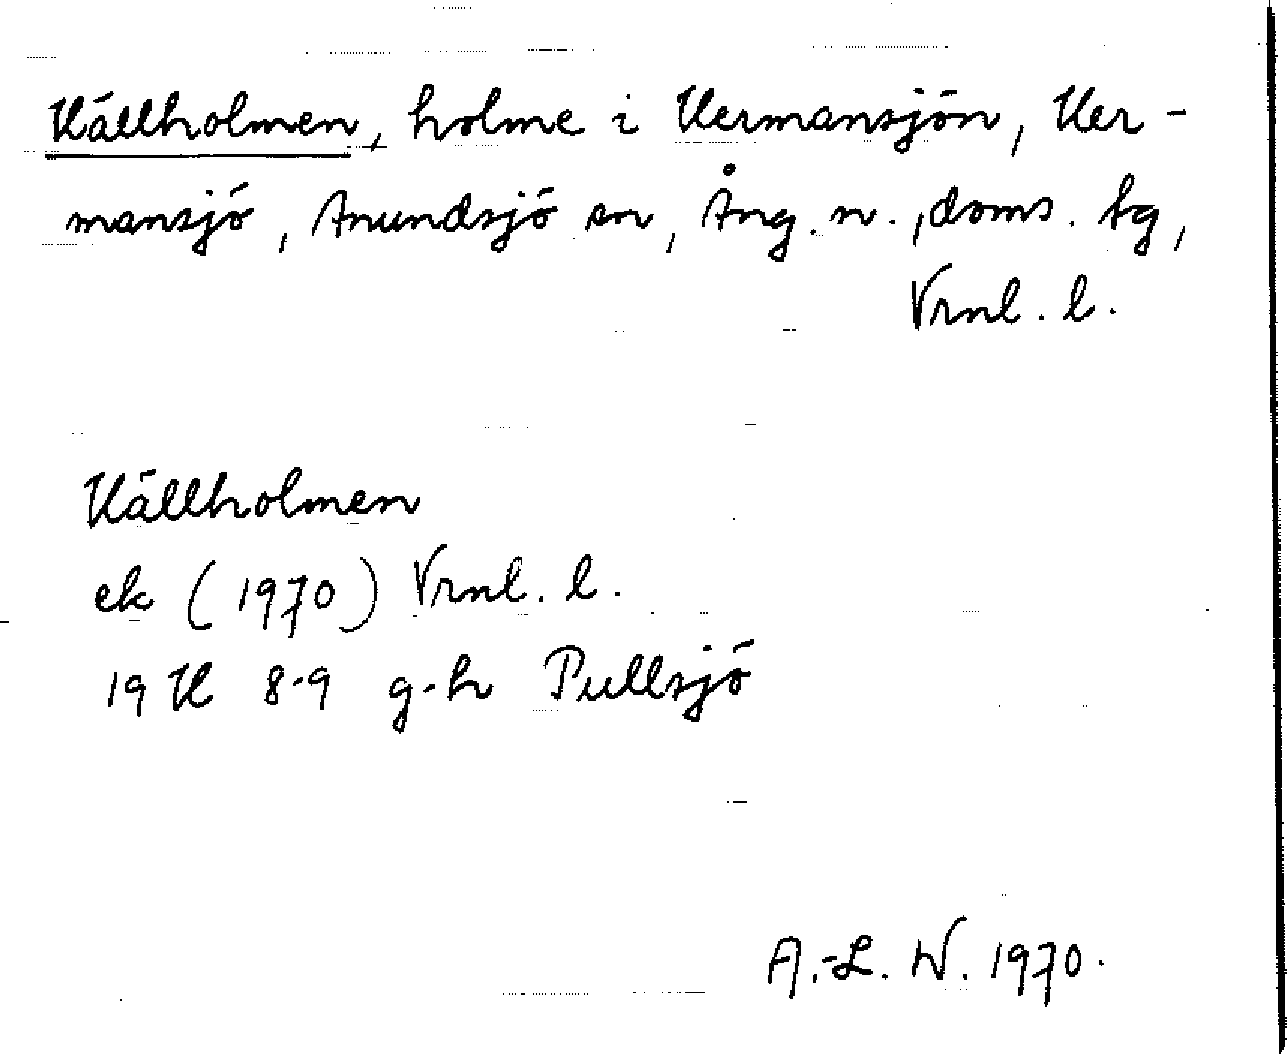 Källholmen, holme i Hermansjön, Her-
mansjö, Anundsjö sn, Ång. n., doms. tg,
Vrnl. l.
Källholmen
ek (1970) Vrnl. l.
19 H 8-9 g-h Pullsjö
A.-L. W. 1970.